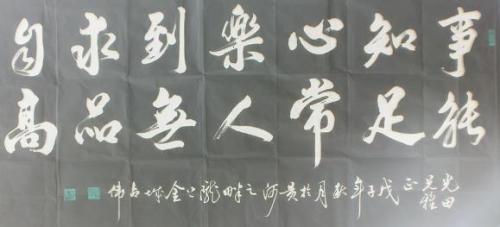 事能
知足
心常
樂人
到無
求品
自高
光田
兄雅
正
戊子年秋月於黄河之畔